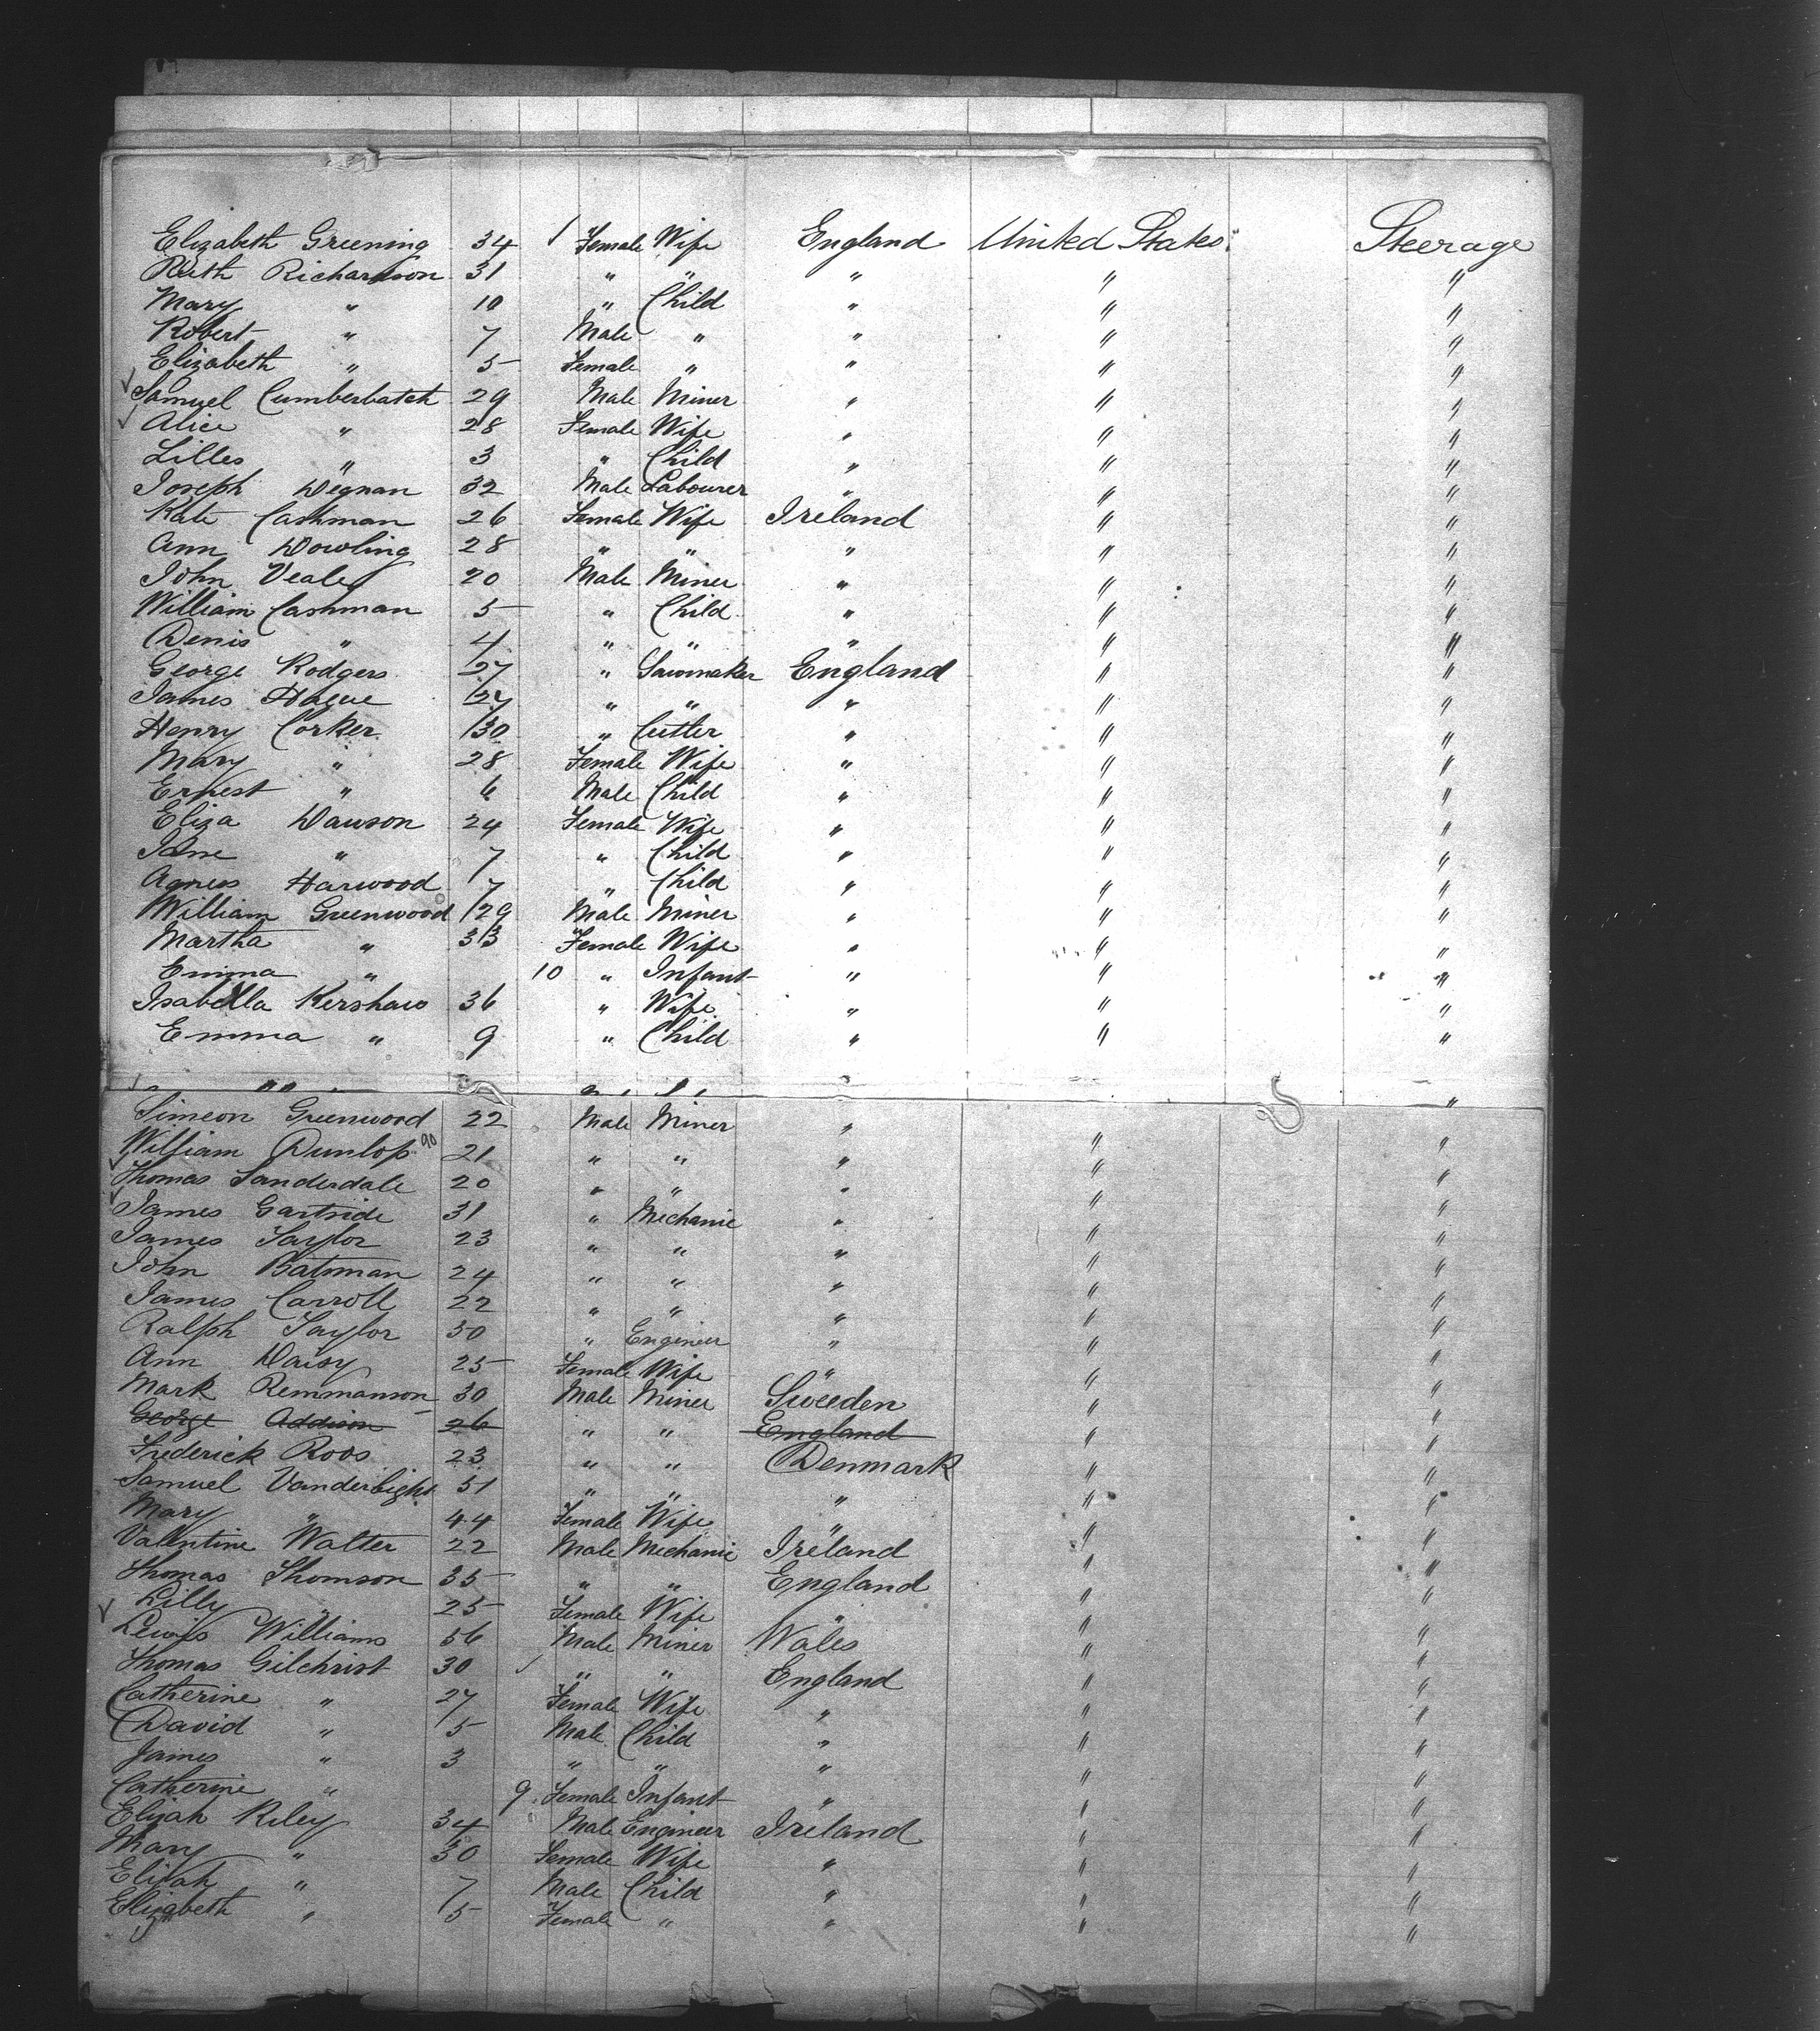 Elizabeth Greening 34 1 Female Wife England United States Steerage
Ruth Richardson 31 " " " " "
Mary " 10 " Child " " "
Robert " 7 Male " " " "
Elizabeth " 5 Female " " " "
Samuel Cumberbatch 29 Male Miner " " "
Alice " 28 Female Wife " " "
Lilles " 3 " Child " " "
Joseph Degnan 32 Male Labourer " " "
Kate Cashman 26 Female Wife Ireland " "
Ann Dowling 28 " " " " "
John Veale 20 Male Miner " " "
William Cashman 5 " Child " " "
Denis " 4 " " " " "
George Rodgers 27 " Sawmaker England " "
James Hague 27 " " " " "
Henry Corker 30 " Cutler " " "
Mary " 28 Female Wife " " "
Ernest " 6 Male Child " " "
Eliza Dawson 24 Female Wife " " "
Jane " 7 " Child " " "
Agnes Harwood 7 " Child " " "
William Greenwood 29 Male Miner " " "
Martha " 33 Female Wife " " "
Emma " 10 " Infant " " "
Isabella Kershaw 36 " Wife " " "
Emma " 9 " Child " " "
Simeon Greenwood 22 Male Miner " " "
William Dunlop 90 21 " " " " "
Thomas Sanderdale 20 " " " " "
James Gartside 31 " Mechanic " " "
James Taylor 23 " " " " "
John Batman 24 " " " " "
James Carroll 22 " " " " "
Ralph Taylor 30 " Engineer " " "
Ann Daisy 25 Female Wife " " "
Mark Remmanson 30 Male Miner Sweeden " "
George Addison 26 " " England " "
Frederick Roos 23 " " Denmark " "
Samuel Vanderbight 51 " " " " "
Mary " 44 Female Wife " " "
Valentine Walter 22 Male Mechanic Ireland " "
Thomas Thomson 35 " " England " "
Lilly " 25 Female Wife " " "
Lewis Williams 56 Male Miner Wales " "
Thomas Gilchrist 30 " " England " "
Catherine " 27 Female Wife " " "
David " 5 Male Child " " "
James " 3 " " " " "
Catherine " 9 Female Infant " " "
Elijah Riley 34 Male Engineer Ireland " "
Mary " 30 Female Wife " " "
Elijah " 7 Male Child " " "
Elizabeth " 5 Female " " " "